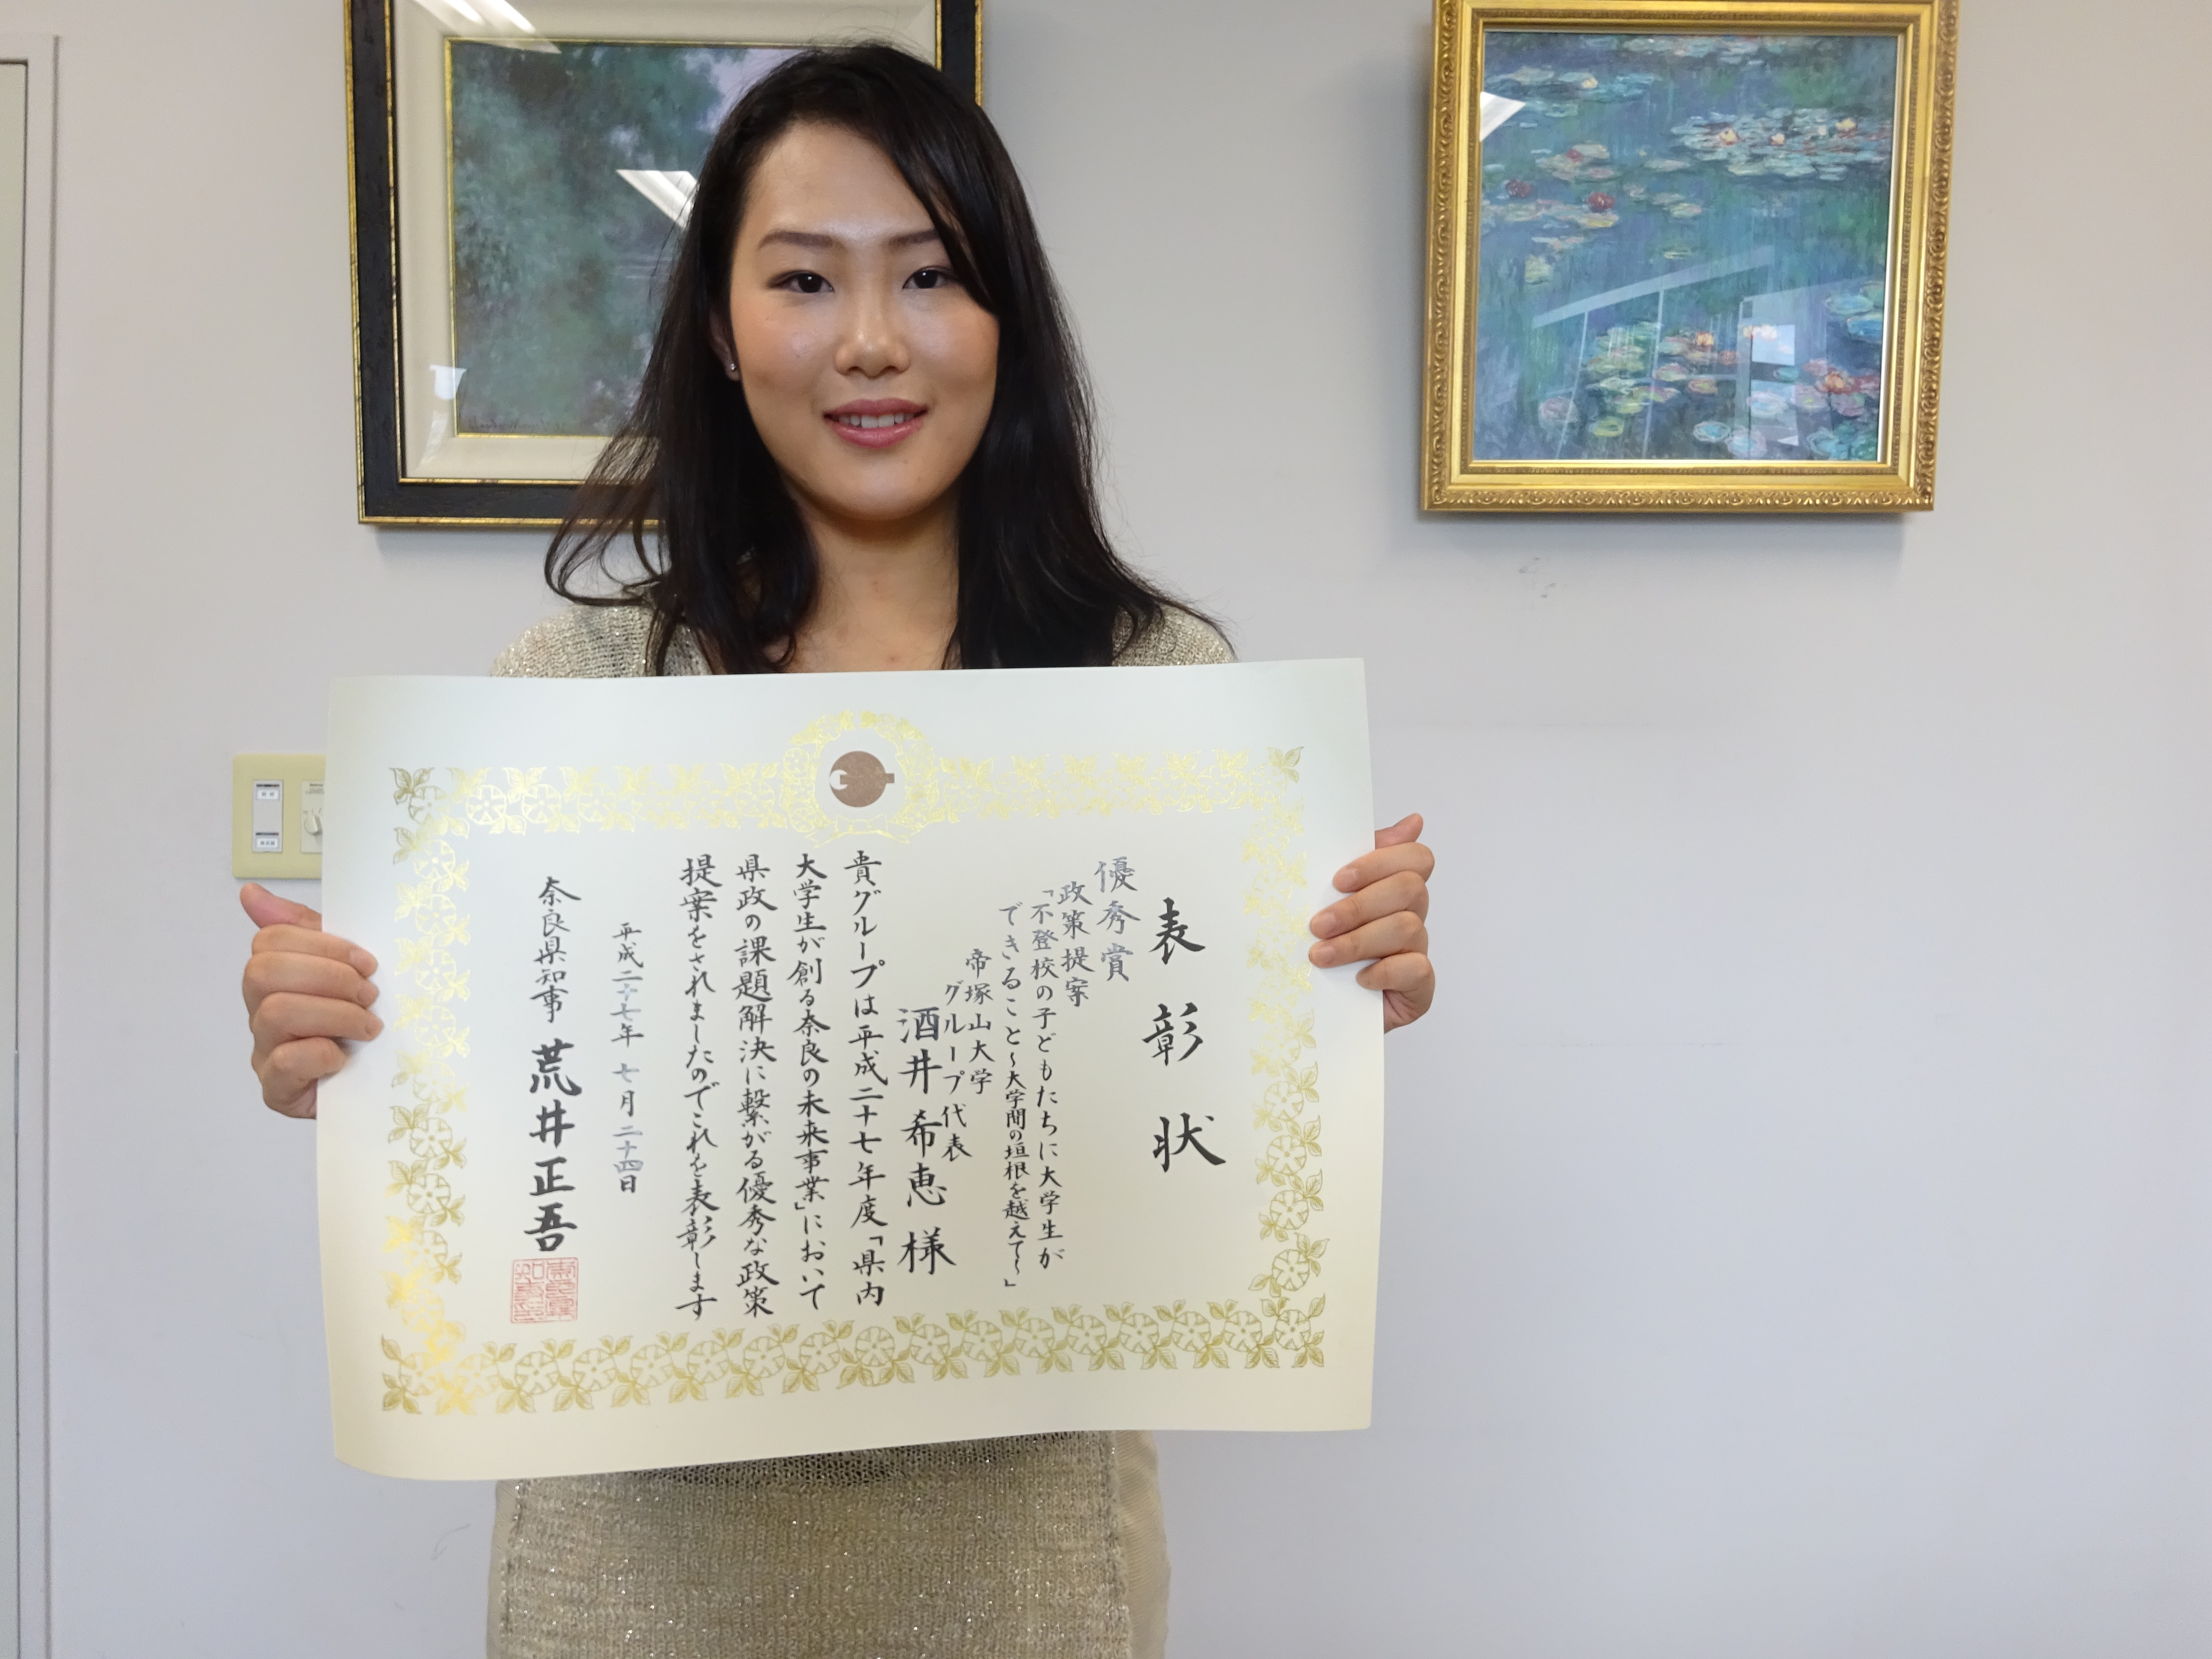 表彰状
優秀賞
政策提案
「不登校の子どもたちに大学生が
できること～大学間の垣根を越えて～」
帝塚山大学
グループ代表
酒井希恵様
貴グループは平成二十七年度「県内
大学生が創る奈良の未来事業」において
県政の課題解決に繋がる優秀な政策
提案をされましたのでこれを表彰します
平成二十七年七月二十四日
奈良県知事 荒井正吾